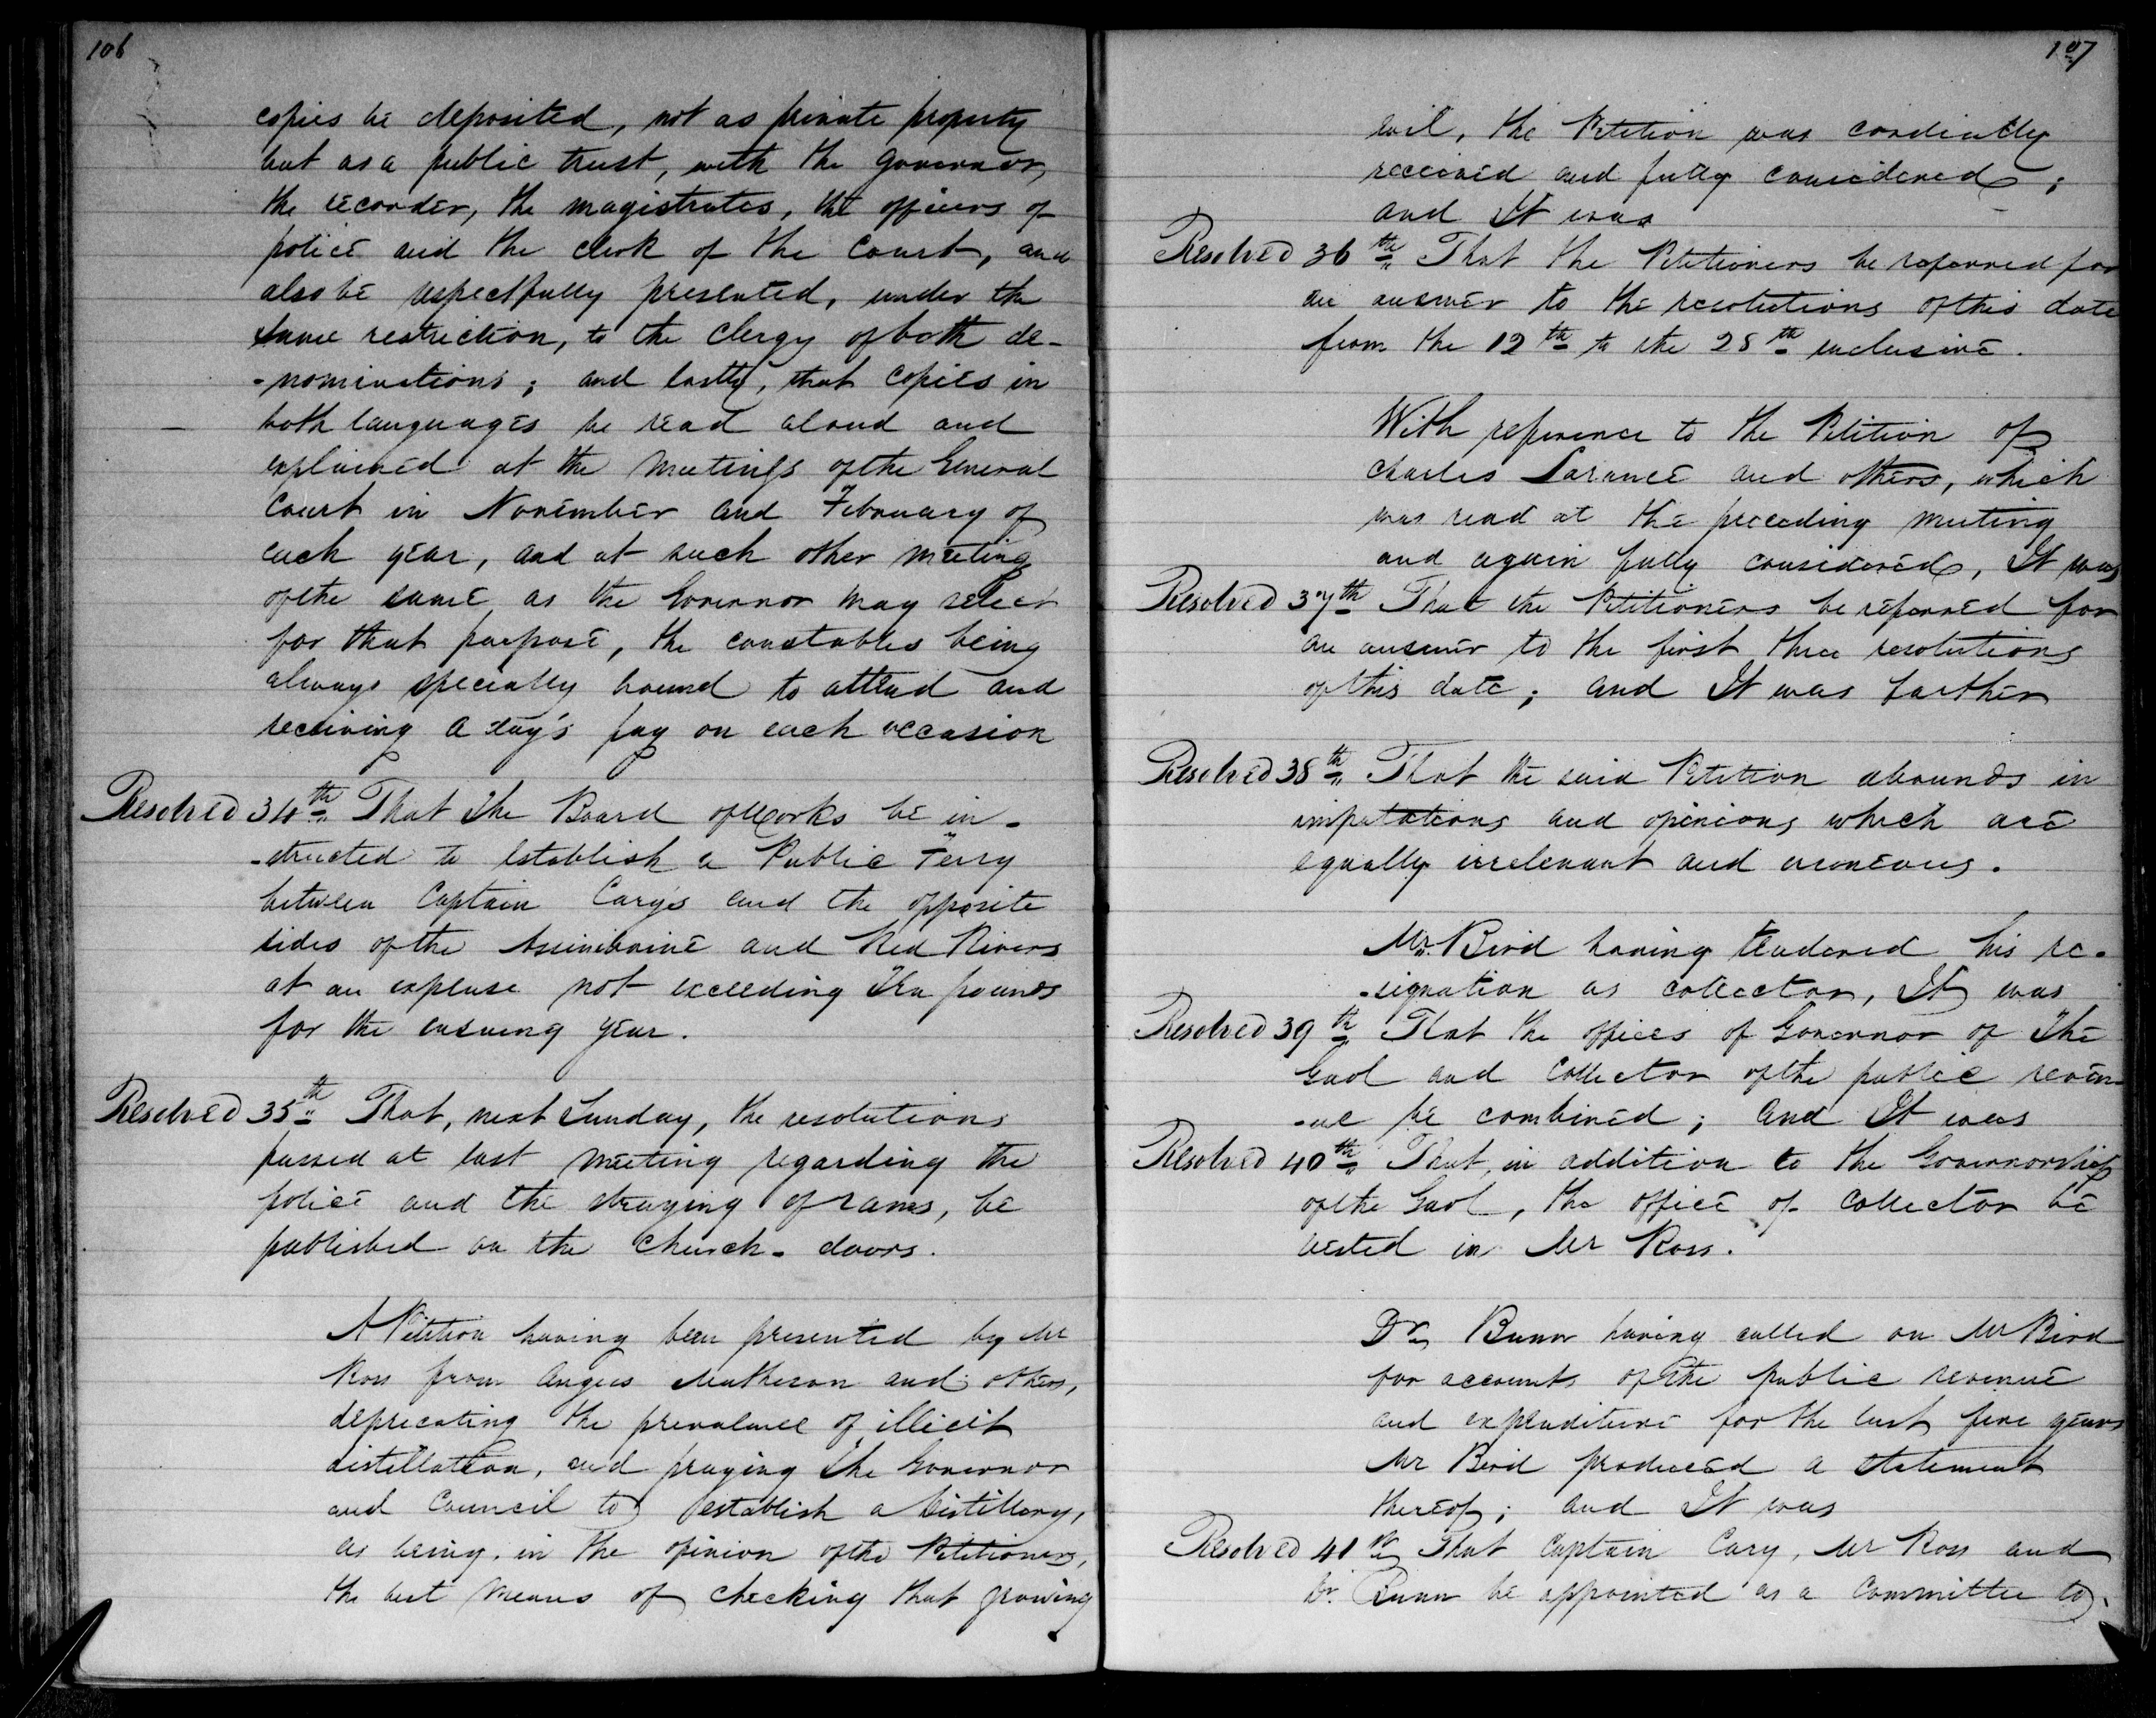 106
copies be deposited, not as private property
but as a public trust, with the governor,
the recorder, the magistrates, the officers of
police and the clerk of the Court, and
also be respectfully presented, under the
same restriction, to the Clergy of both de-
-nominations; and lastly, that copies in
both languages be read aloud and
explained at the meetings of the General
Court in November and February of
each year, and at such other meeting
of the same as the Governor may select
for that purpose, the constables being
always specially bound to attend and
receiving a day's pay on each occasion
Resolved 34th That the Board of Works be in-
-structed to establish a Public Ferry
between Captain Cary's and the opposite
sides of the Assiniboine and Red Rivers
at an expense not exceeding Ten pounds
for the ensuing year.
Resolved 35th That, next Sunday, the resolutions
passed at last meeting regarding the
police and the straying of rams, be
published on the church-doors.
A Petition having been presented by Mr
Ross from Angus Matheson and others,
deprecating the prevalence of illicit
distillation, and praying the Governor
and Council to establish a distillery,
as being, in the opinion of the Petitioners,
the best means of checking that growing
107
evil, the Petition was cordially
received and fully considered;
and It was
Resolved 36th That the Petitioners be referred for
an answer to the resolutions of this date
from the 12th to the 28th inclusive.
With reference to the Petition of
Charles Larance and others, which
was read at the preceding meeting
and again fully considered, It was
Resolved 37th That the Petitioners be referred for
an answer to the first three resolutions
of this date; and It was farther
Resolved 38th That the said Petition abounds in
imputations and opinions which are
equally irrelevant and erroneous.
Mr. Bird having tendered his re-
-signation as collector, It was
Resolved 39th That the offices of Governor of the
Gaol and Collector of the public reven-
-ue be combined; and It was
Resolved 40th That, in addition to the Governorship
of the Gaol, the office of Collector be
vested in Mr Ross.
Dr. Bunn having called on Mr Bird
for accounts of the public revenue
and expenditure for the last five years
Mr Bird produced a statement
thereof; and It was
Resolved 41st That Captain Cary, Mr Ross and
Dr. Bunn be appointed as a Committee to